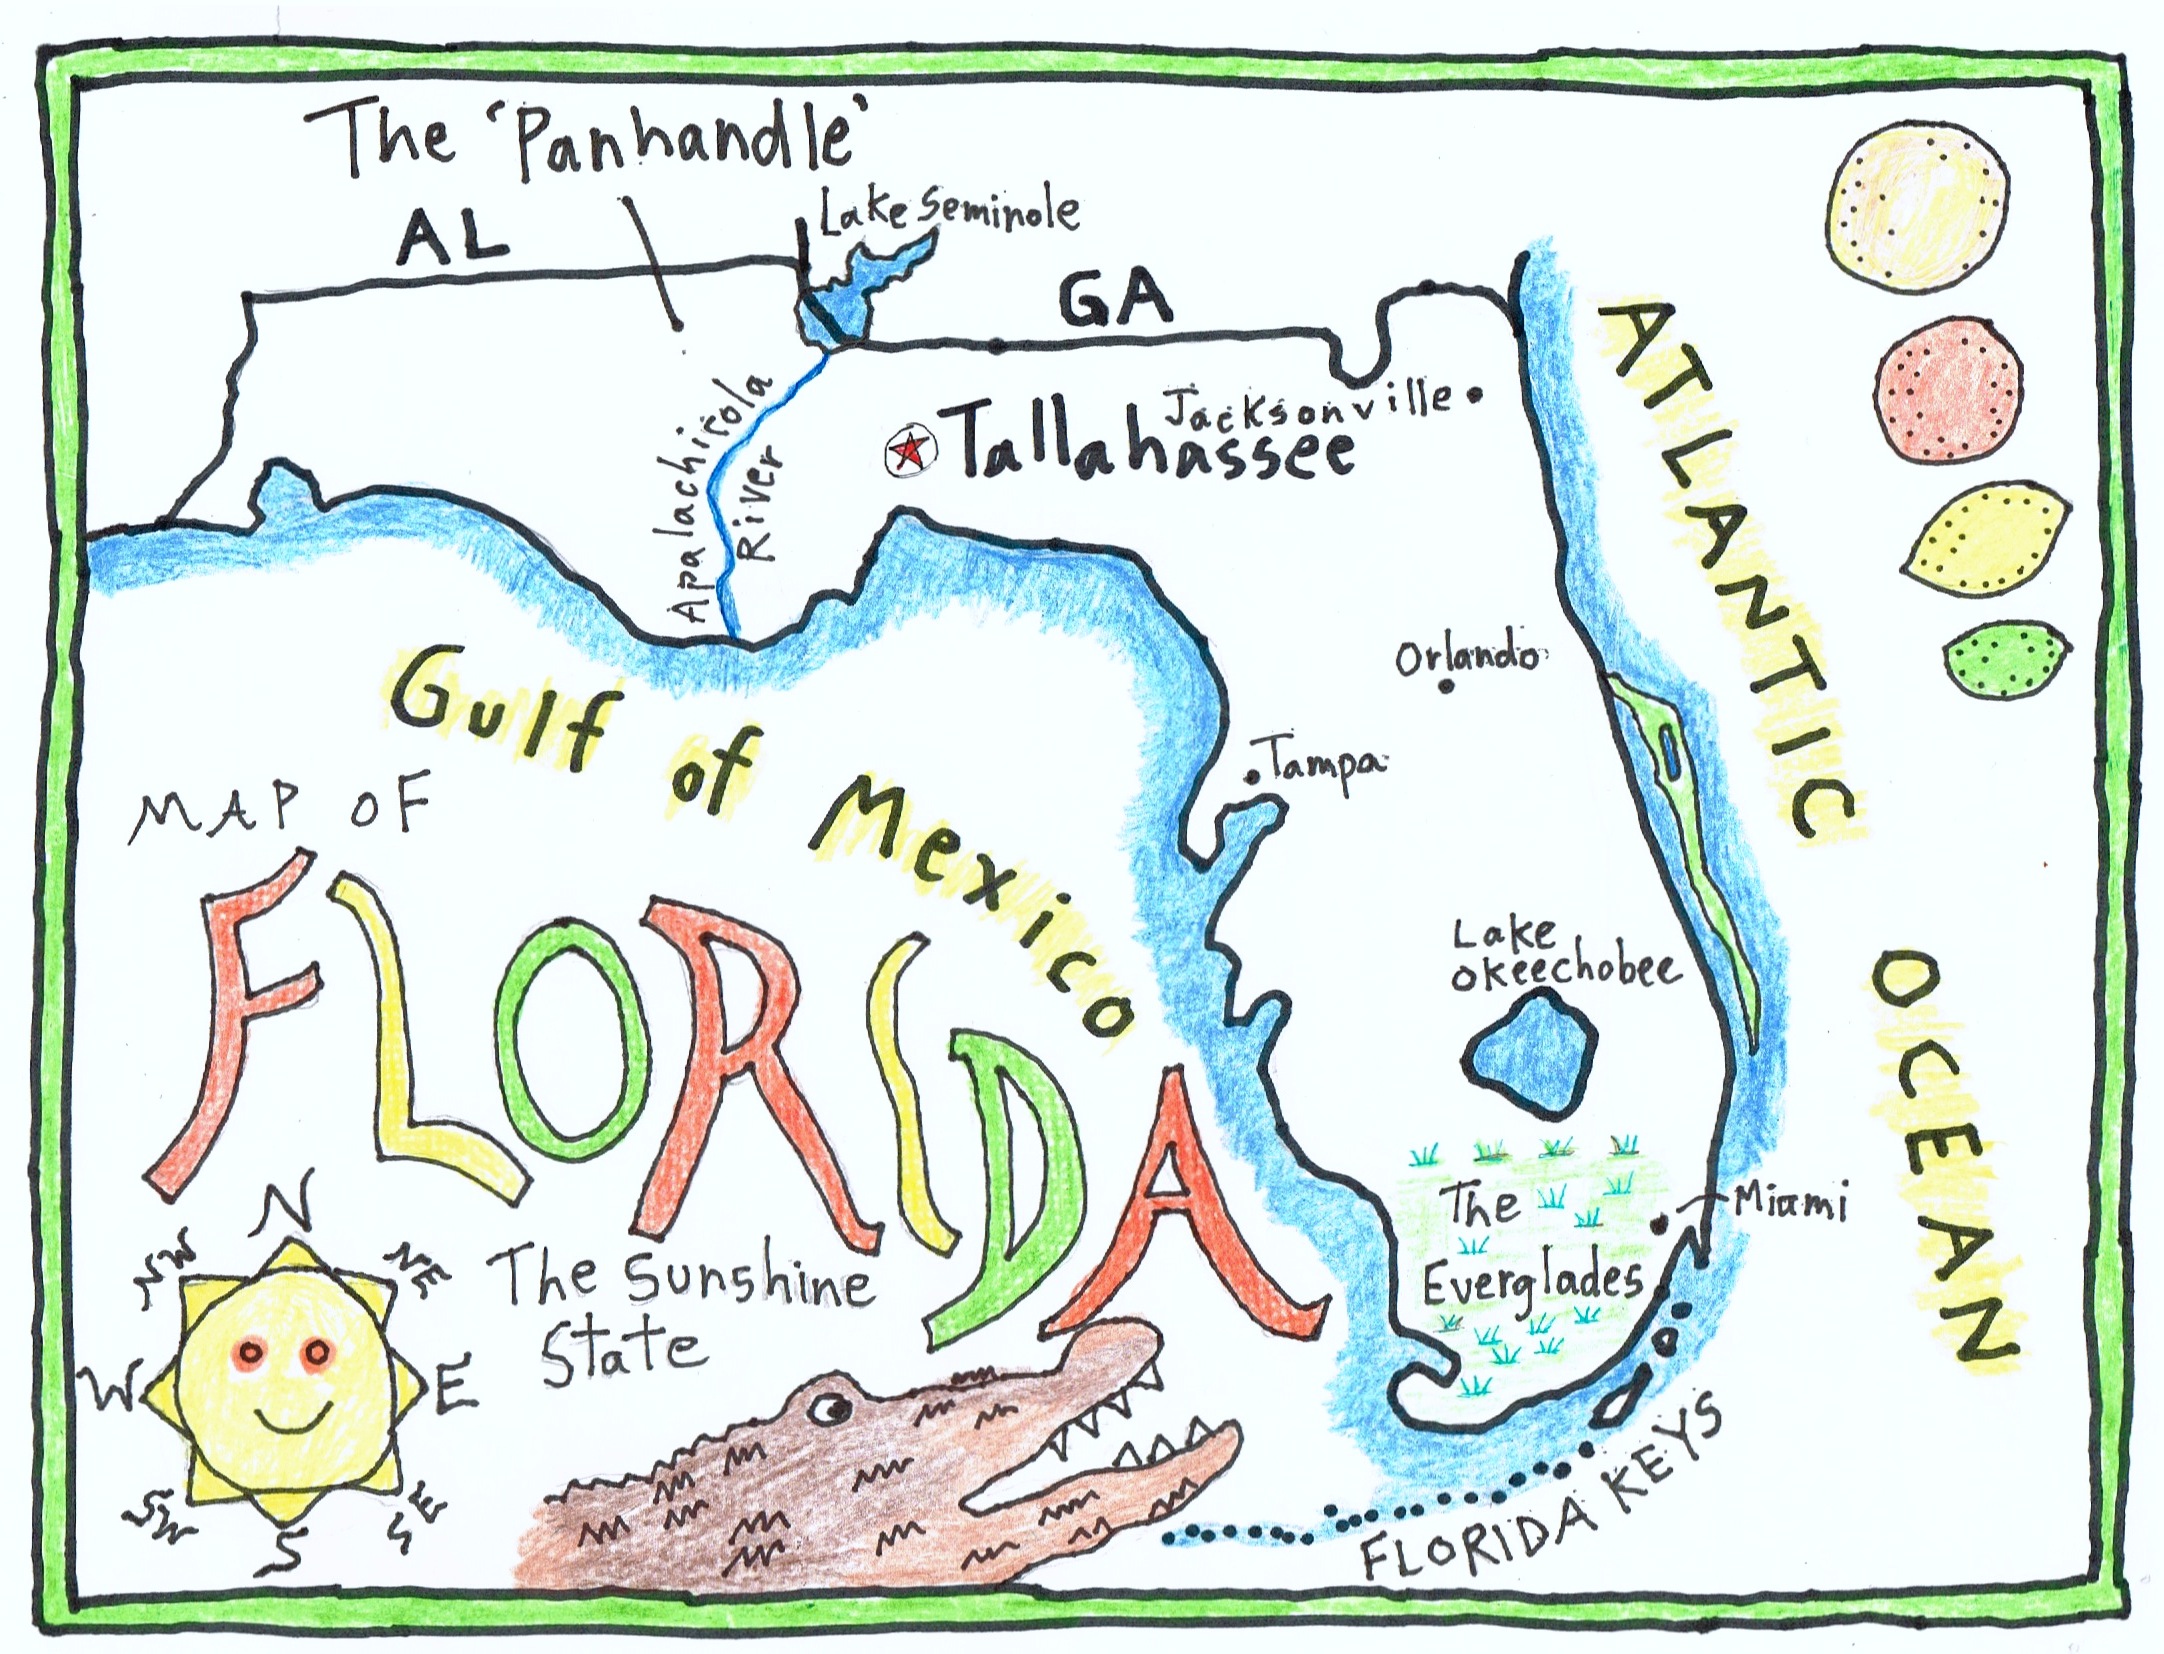 The 'Panhandle'
Lake Seminole
AL
GA
Jacksonville
Tallahassee
Apalachicola
River
Orlando
Tampa
Gulf of Mexico
ATLANTIC OCEAN
MAP OF
FLORIDA
The Sunshine
State
Lake
Okeechobee
The
Everglades
Miami
FLORIDA KEYS
N
NE
E
SE
S
SW
W
NW